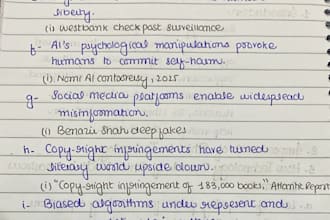 liberty.
(i) westbank checkpost surveillance
f- AI's psychological manipulations provoke
humans to commit self-harm.
(i). Nomi AI contoversy, 2025
g- Social media platforms enable widespread
misinformation.
(i) Benazir Shah deepfakes
h- Copy-right infringements have tuned
literary world upside down.
(i) "Copy-right infringement of 183,000 books," Atlantic Report
i- Biased algorithms under represent and